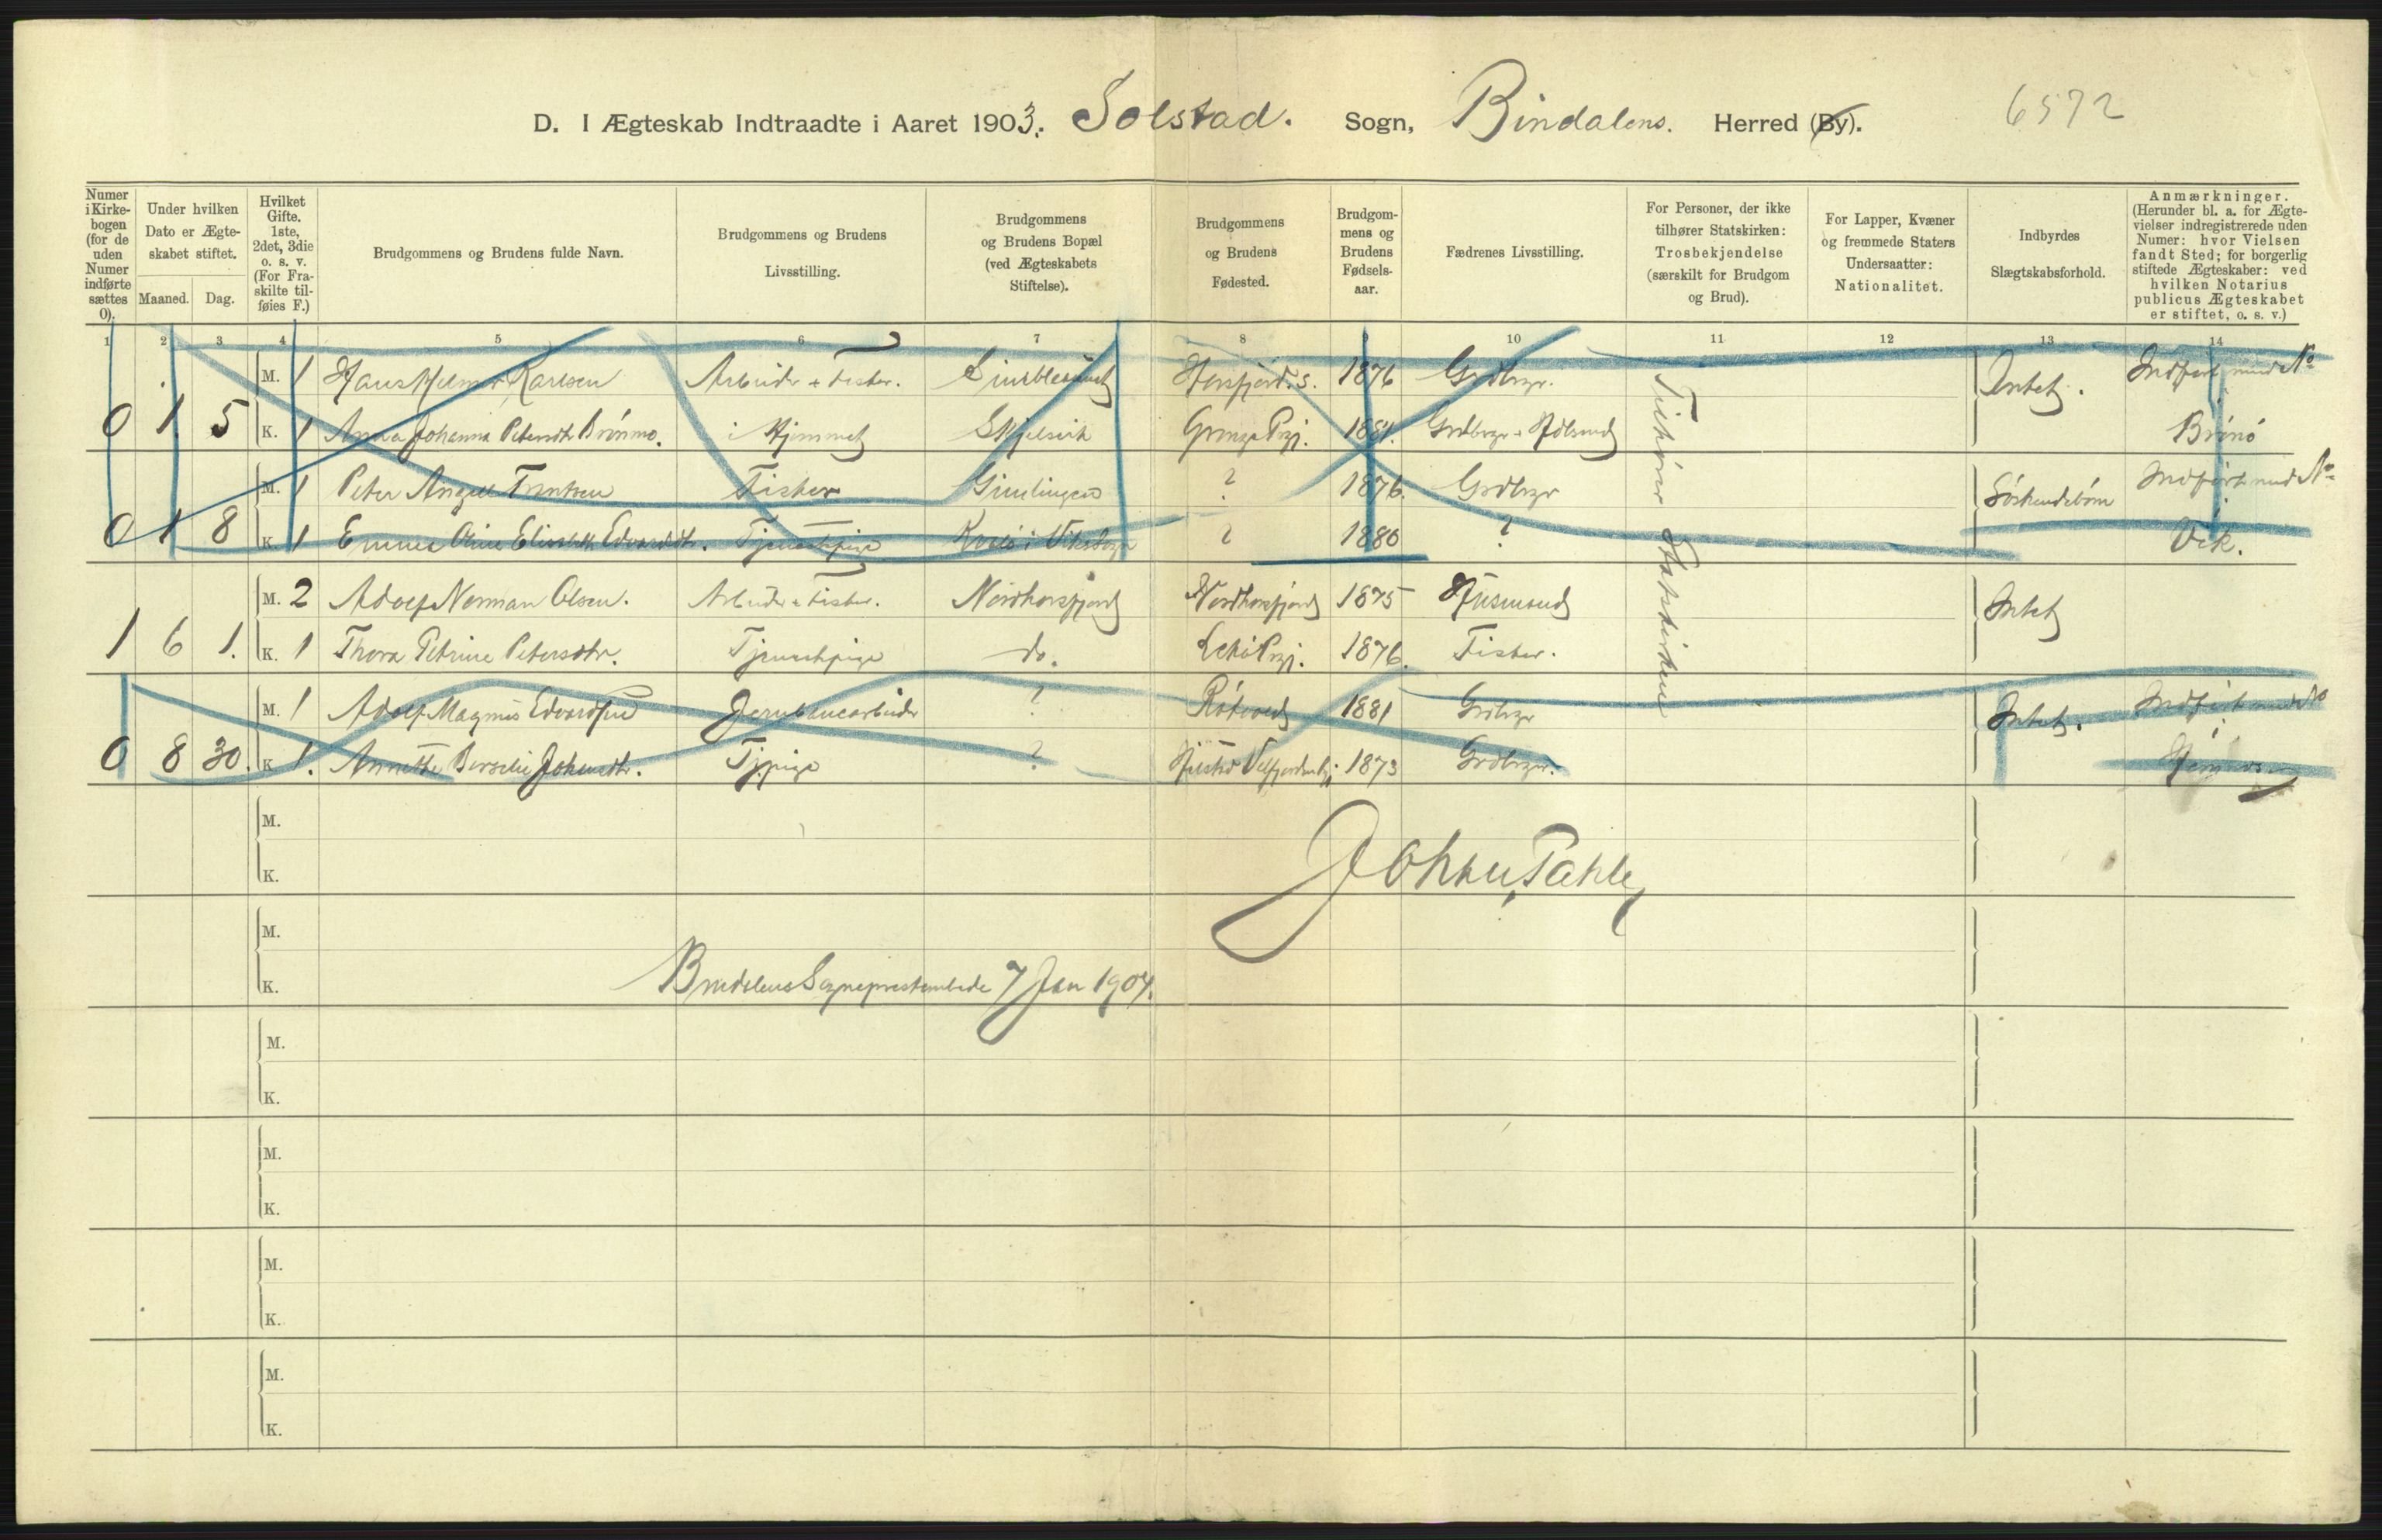 D. I Ægteskab Indtraadte i Aaret 1903. Solstad. Sogn, Bindalens. Herred (By). 6572
Numer i Kirkebogen (for de uden Numer indførte sættes 0).
Under hvilken Dato er Ægteskabet stiftet.
Maaned. Dag.
Hvilket Gifte. 1ste, 2det, 3die o. s. v. (For Fraskilte tilføies F.)
Brudgommens og Brudens fulde Navn.
Brudgommens og Brudens Livsstilling.
Brudgommens og Brudens Bopæl (ved Ægteskabets Stiftelse).
Brudgommens og Brudens Fødested.
Brudgommens og Brudens Fødselsaar.
Fædrenes Livsstilling.
For Personer, der ikke tilhører Statskirken: Trosbekjendelse (særskilt for Brudgom og Brud).
For Lapper, Kvæner og fremmede Staters Undersaatter: Nationalitet.
Indbyrdes Slægtskabsforhold.
Anmærkninger. (Herunder bl. a. for Ægtevielser indregistrerede uden Numer: hvor Vielsen fandt Sted; for borgerlig stiftede Ægteskaber: ved hvilken Notarius publicus Ægteskabet er stiftet, o. s. v.)
1 2 3 4 5 6 7 8 9 10 11 12 13 14
M. 1 Hans Hilmar Karlsen Arbeider + Fisker. Horsfjord. S. 1876 Grdbrgr. Intet. Indført med No
0 1 5 K. 1 Anna Johanna Petersdtr Brönmo. i Hjemmet Skjelsvik 1881. Brönö
M. 1 Peter Angell Fisker ? 1876. Grdbrgr Söskendebörn Indført med No
0 1 8 K. 1 Emma Oline Elisabeth Edvardsdtr. Tjenestepige ? 1880 ? Vik.
M. 2 Adolf Norman Olsen. Arbeider + Fisker. Nordhorsfjord Nordhorsfjord 1875 Husmand Intet
1 6 1. K. 1 Thora Petrine Petersdtr. Tjenestepige do. Lekö Prgj. 1876. Fisker.
M. 1 Adolf Magnus Edvardsen Jernbanearbeider ? Rökvold 1881 Grdbrgr Intet. Indført med No
0 8 30. K. 1. Annette Johansdtr. Tj.pige ? 1873 Grdbrgr.
Tilhører Statskirken
M.
K.
M.
K.
Bindalens Sogneprestembede 7 Jan 1904.
M.
K.
M.
K.
M.
K.
M.
K.